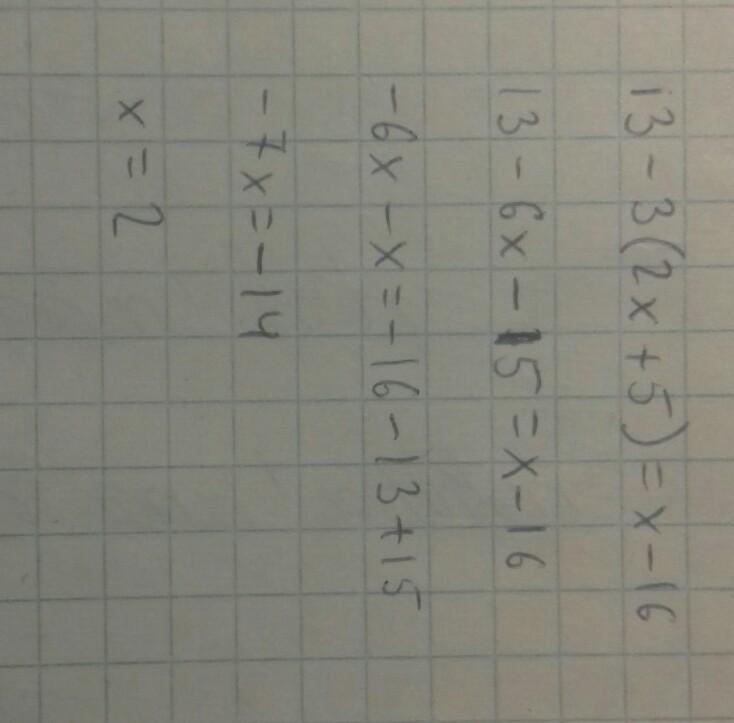 13 - 3(2x + 5) = x - 16
13 - 6x - 15 = x - 16
-6x - x = -16 - 13 + 15
-7x = -14
x = 2